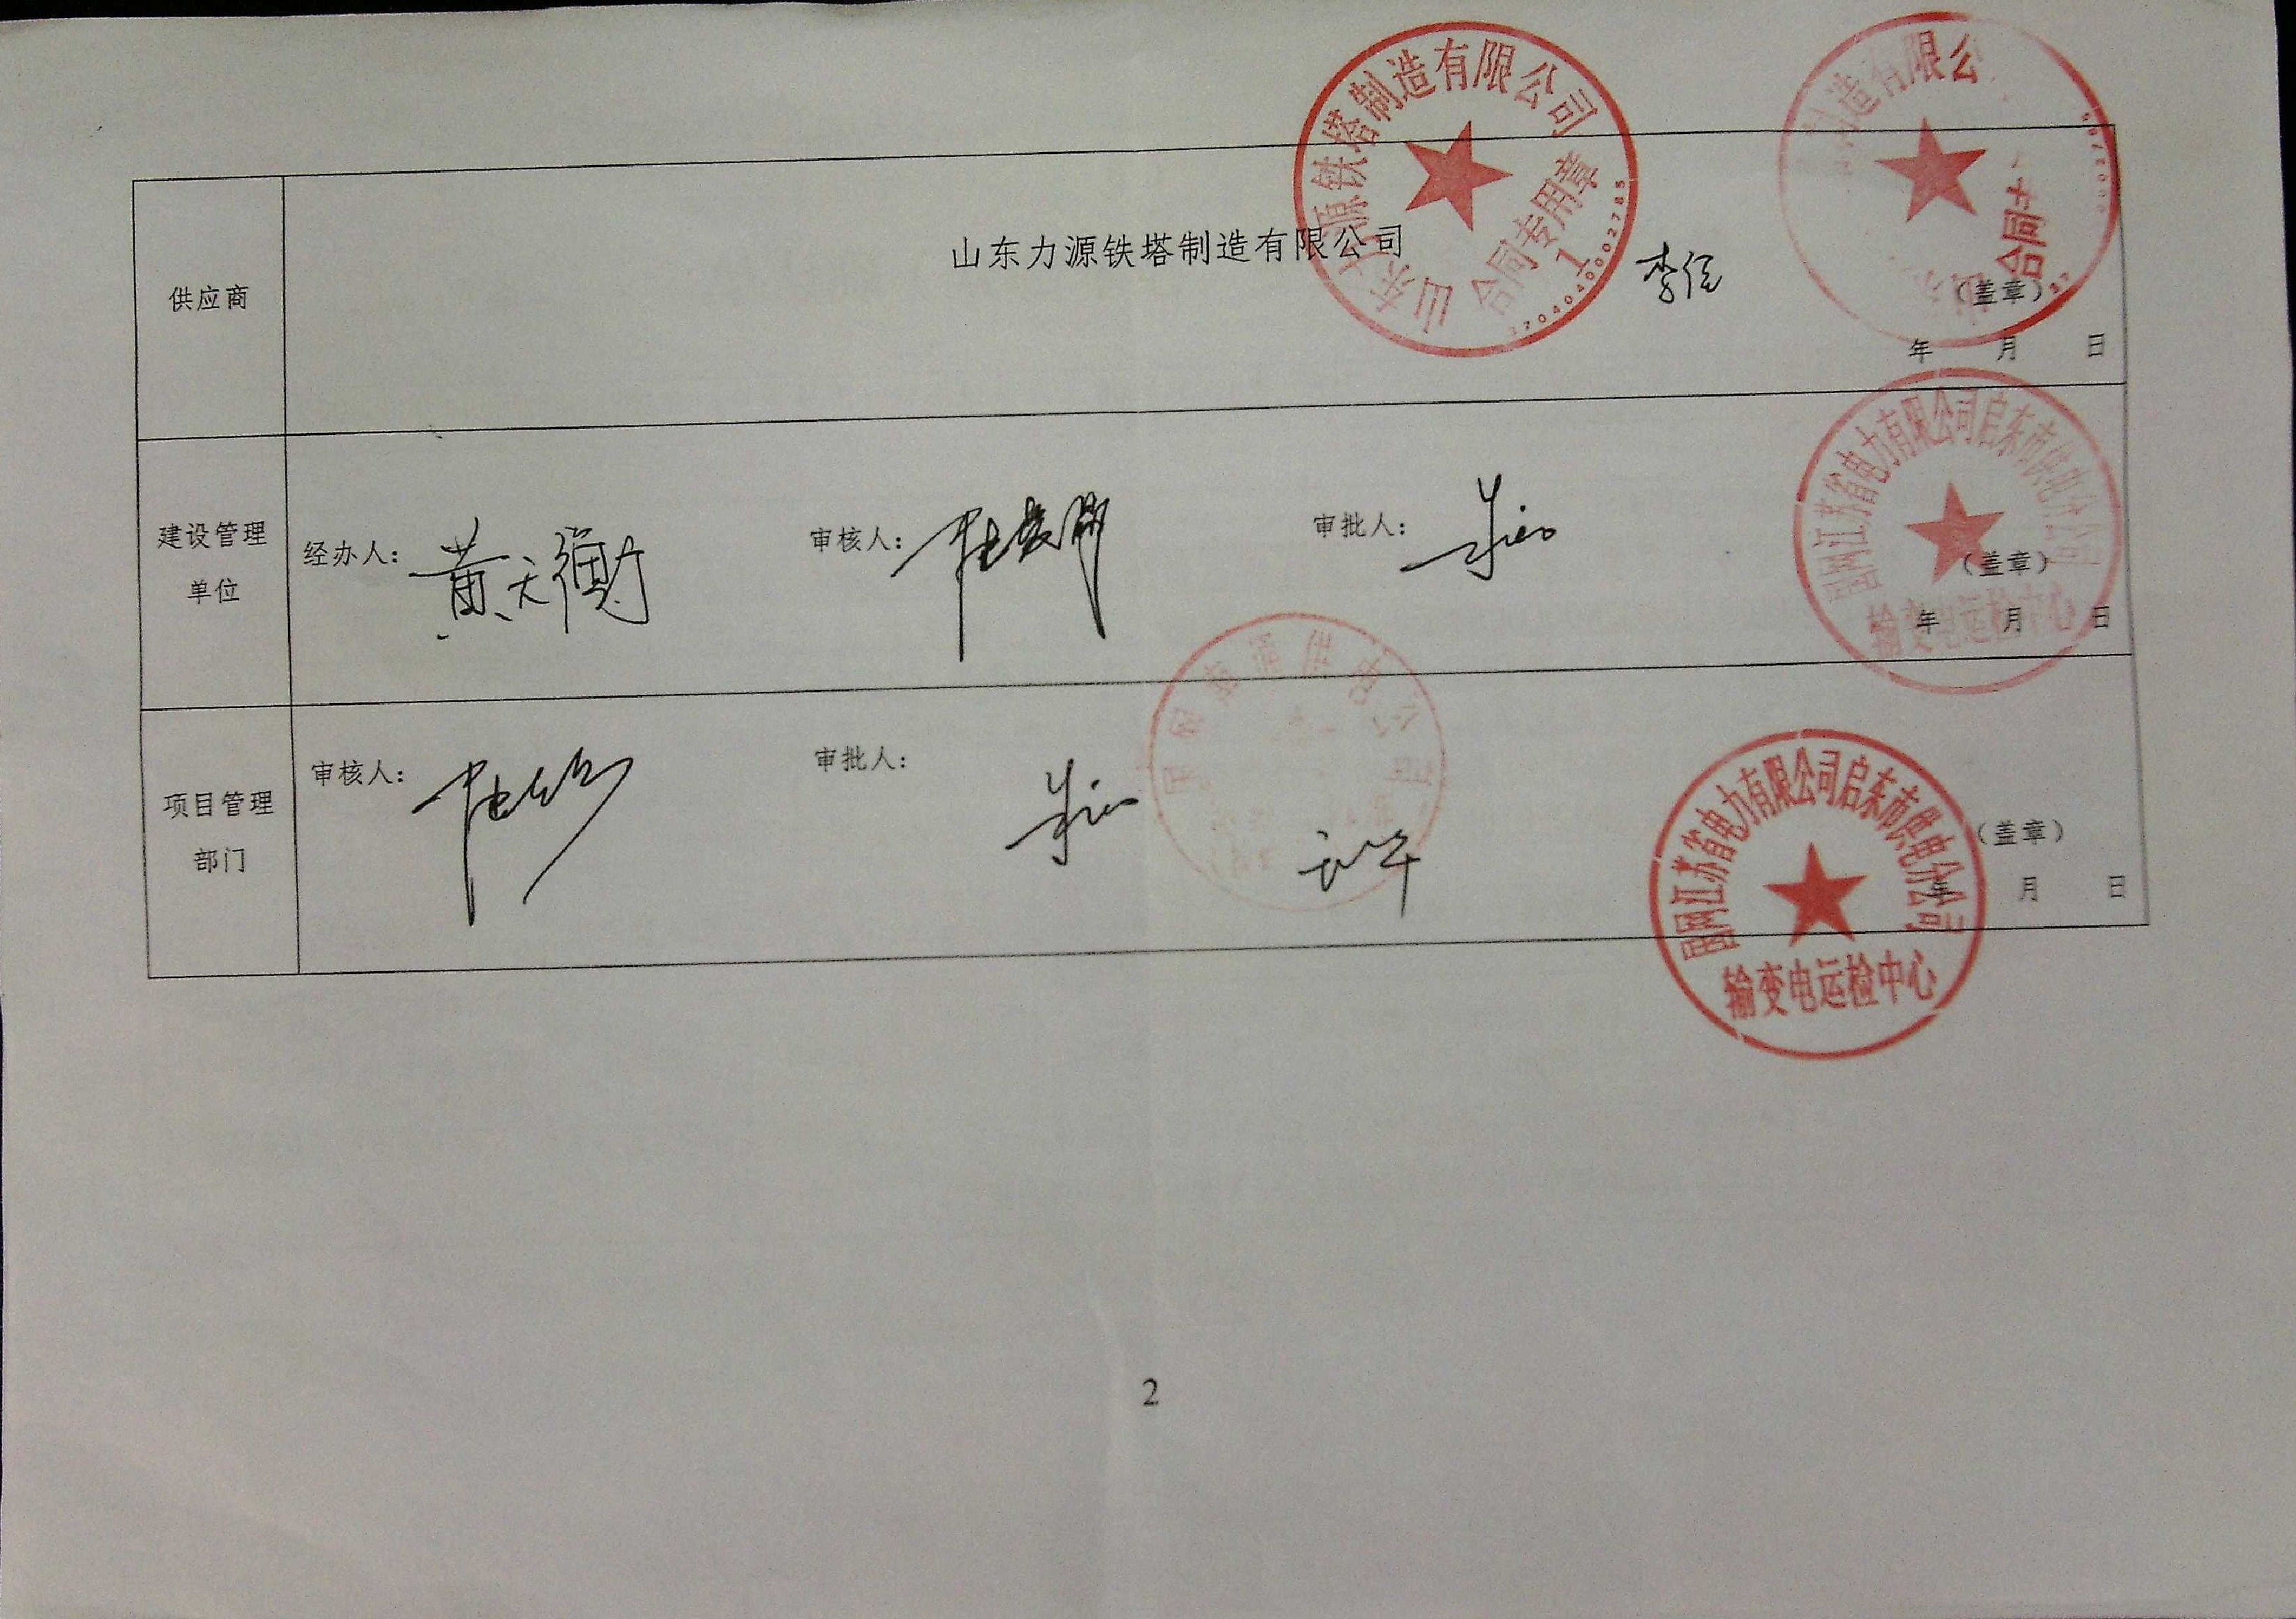 山东力源铁塔制造有限公司
合同专用章
1
3704040002785
造有限公
合同
供应商
山东力源铁塔制造有限公司
李
(盖章)
年 月 日
国网江苏省电力有限公司启东市供电分公司
输变电运检中心
建设管理
单位
经办人: 黄天衡
审核人:
审批人:
(盖章)
年 月 日
项目管理
部门
审核人:
审批人:
国网江苏省电力有限公司启东市供电分公司
输变电运检中心
(盖章)
年 月 日
2